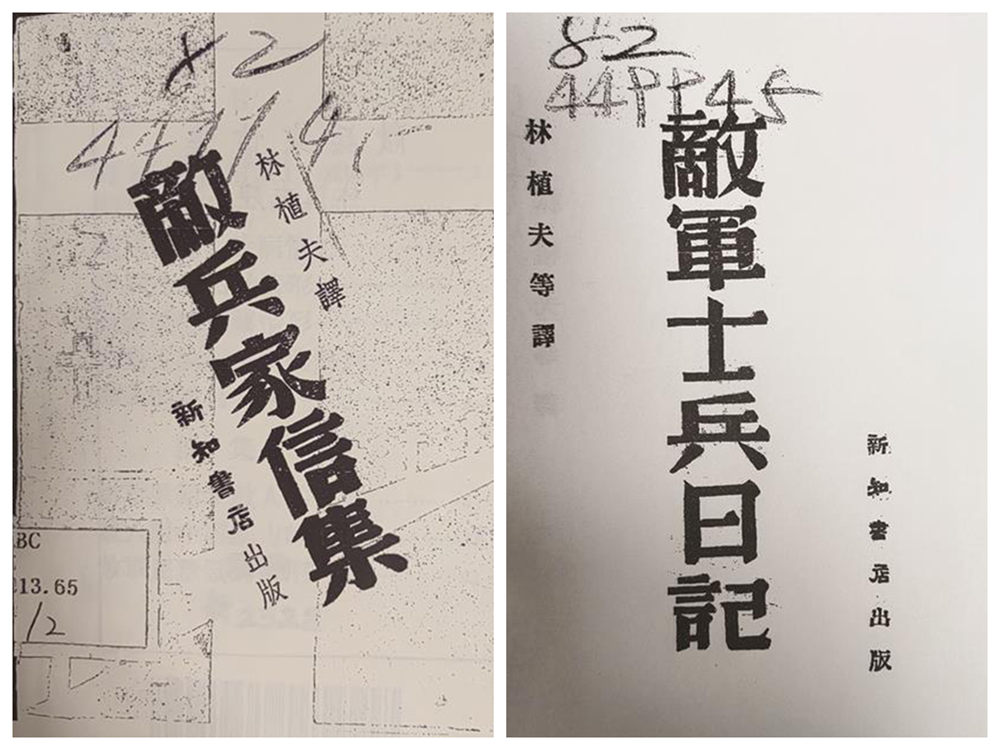 82
林植夫譯
敵兵家信集
新知書店出版
BC
13.65
/2
82
44PP45
林植夫等譯
敵軍士兵日記
新知書店出版